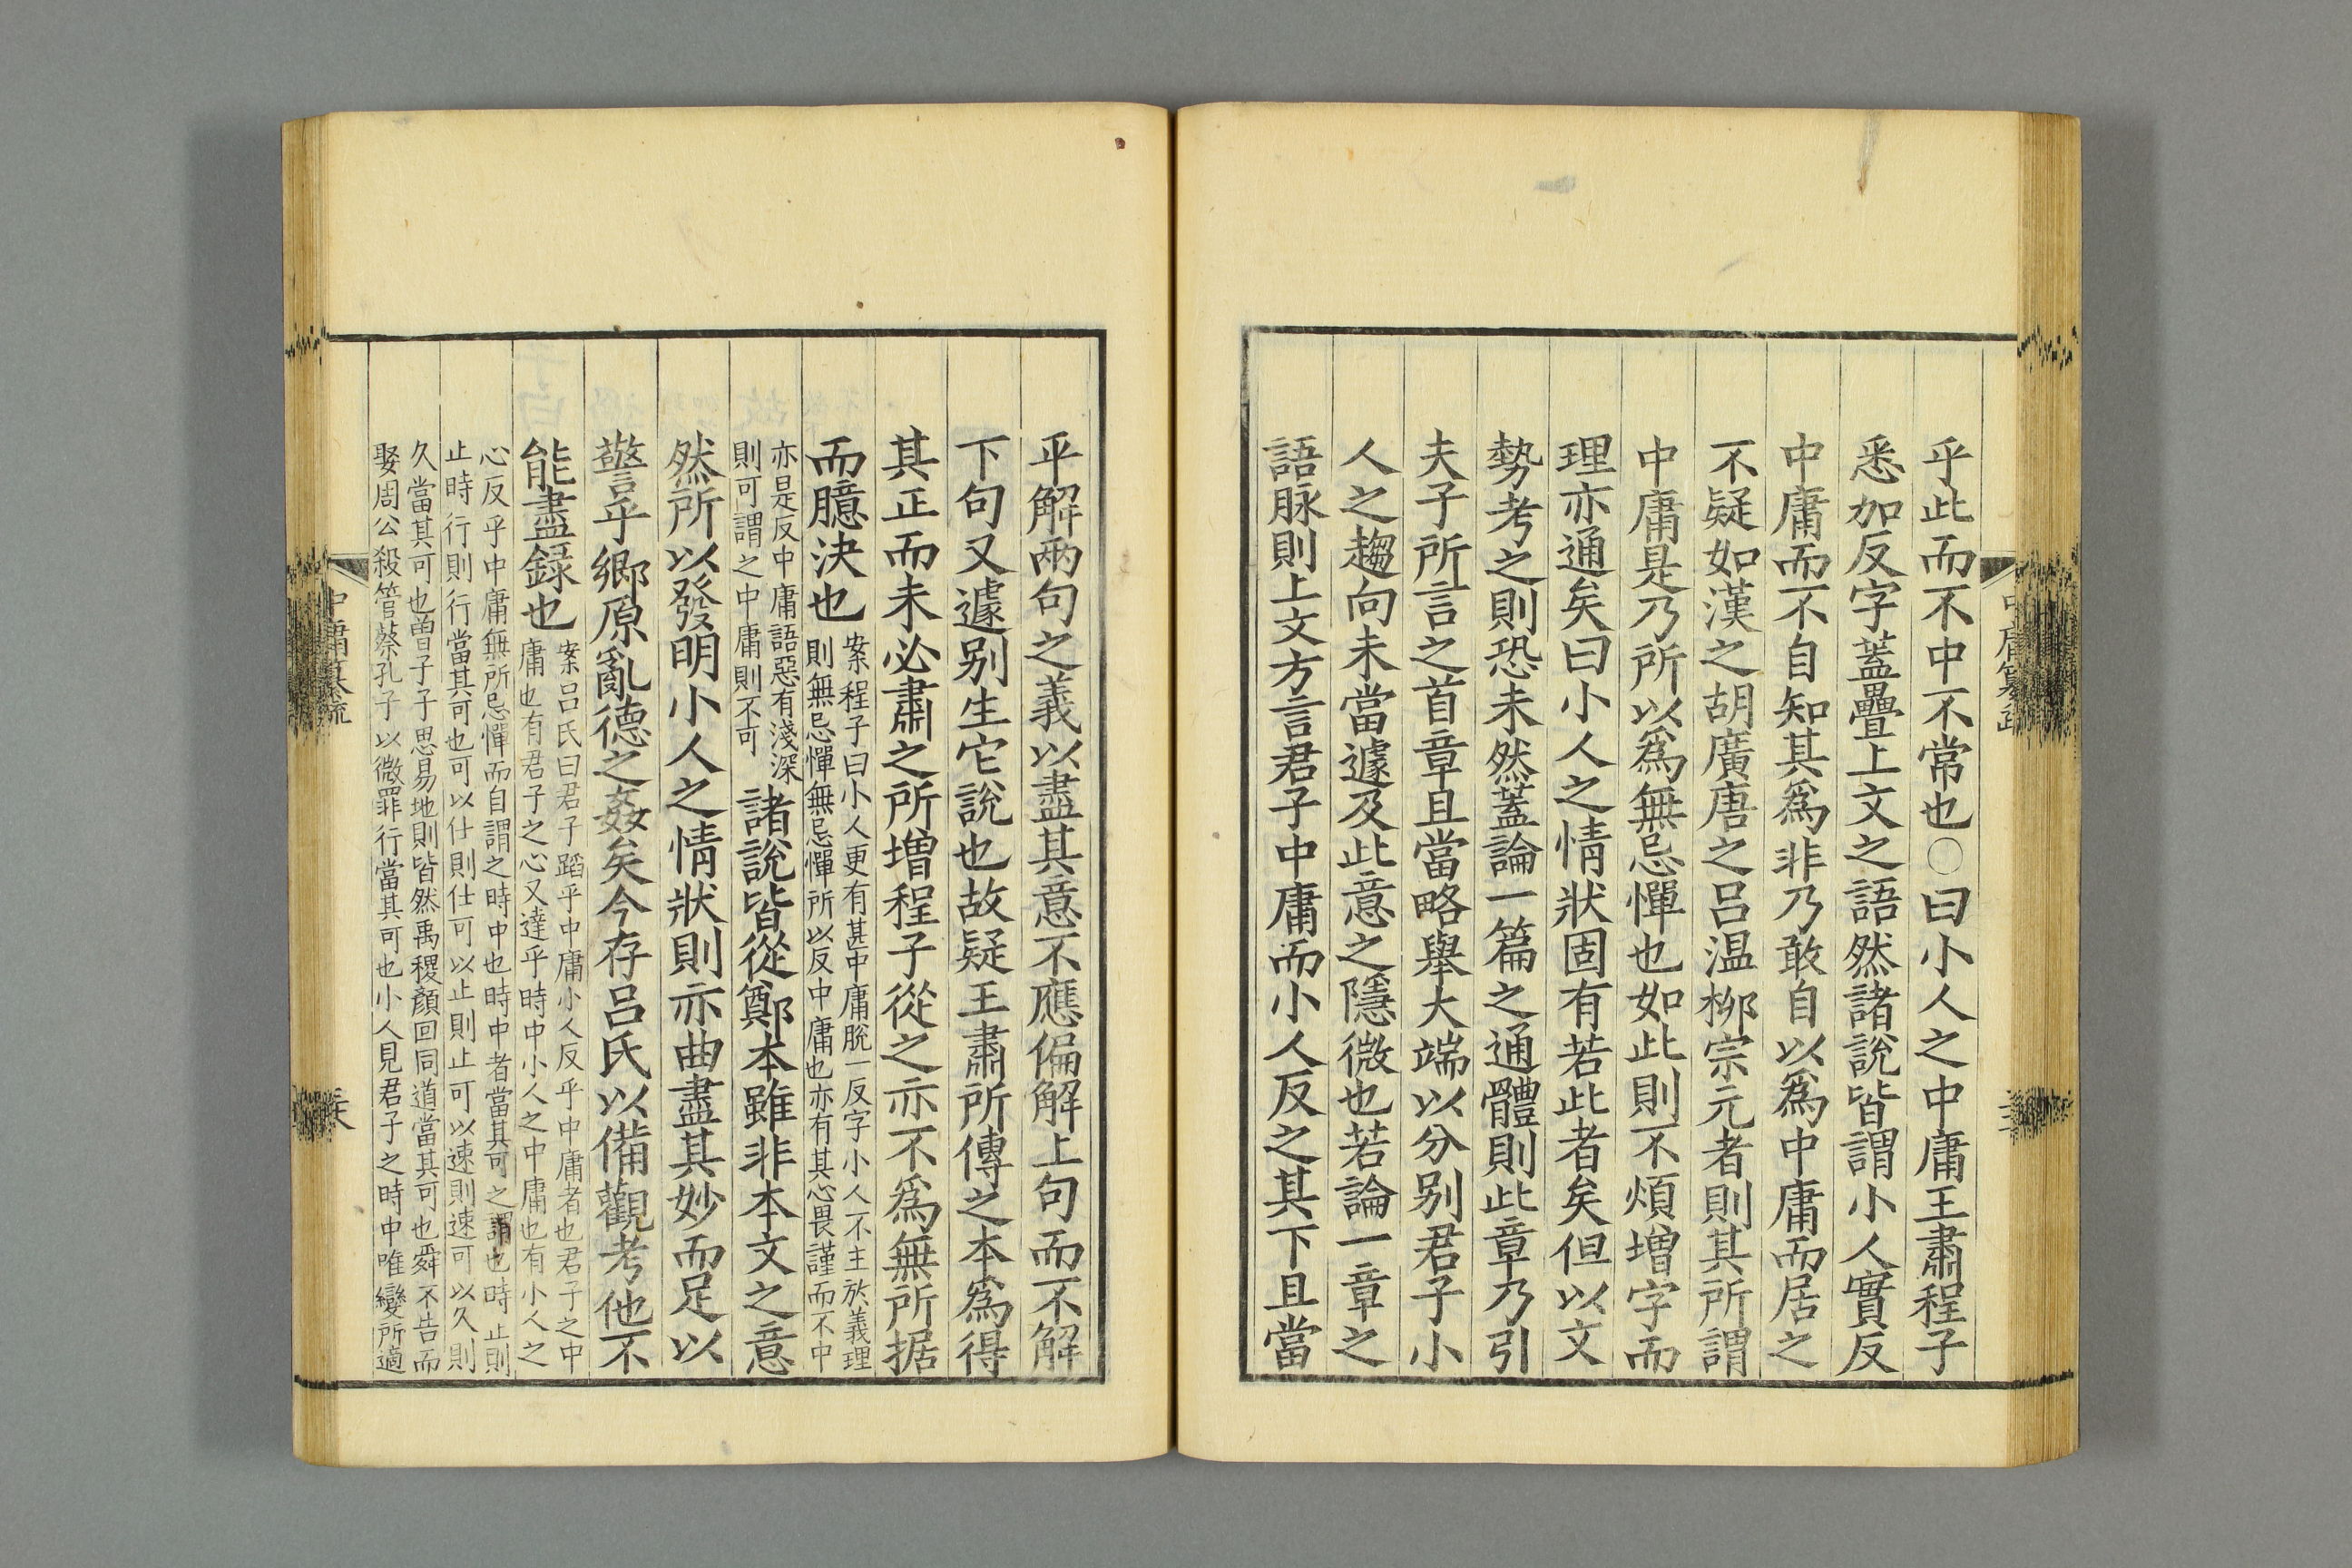 乎此而不中不常也○曰小人之中庸王肅程子
悉加反字蓋疊上文之語然諸說皆謂小人實反
中庸而不自知其爲非乃敢自以爲中庸而居之
不疑如漢之胡廣唐之呂温柳宗元者則其所謂
中庸是乃所以爲無忌憚也如此則不煩增字而
理亦通矣曰小人之情狀固有若此者矣但以文
勢考之則恐未然蓋論一篇之通體則此章乃引
夫子所言之首章且當略舉大端以分别君子小
人之趨向未當遽及此意之隱微也若論一章之
語脉則上文方言君子中庸而小人反之其下且當
平解兩句之義以盡其意不應偏解上句而不解
下句又遽别生它說也故疑王肅所傳之本爲得
其正而未必肅之所增程子從之亦不爲無所据
而臆決也
案程子曰小人更有甚中庸脫一反字小人不主於義理
則無忌憚無忌憚所以反中庸也亦有其心畏謹而不中
亦是反中庸語惡有淺深
則可謂之中庸則不可
諸說皆從鄭本雖非本文之意
然所以發明小人之情狀則亦曲盡其妙而足以
警乎鄉原亂德之姦矣今存呂氏以備觀考他不
能盡録也
案呂氏曰君子蹈乎中庸小人反乎中庸者也君子之中
庸也有君子之心又達乎時中小人之中庸也有小人之
心反乎中庸無所忌憚而自謂之時中也時中者當其可之謂也時止則
止時行則行當其可也可以仕則仕可以止則止可以速則速可以久則
久當其可也曾子子思易地則皆然禹稷顏回同道當其可也舜不告而
娶周公殺管蔡孔子以微罪行當其可也小人見君子之時中唯變所適
中庸纂疏